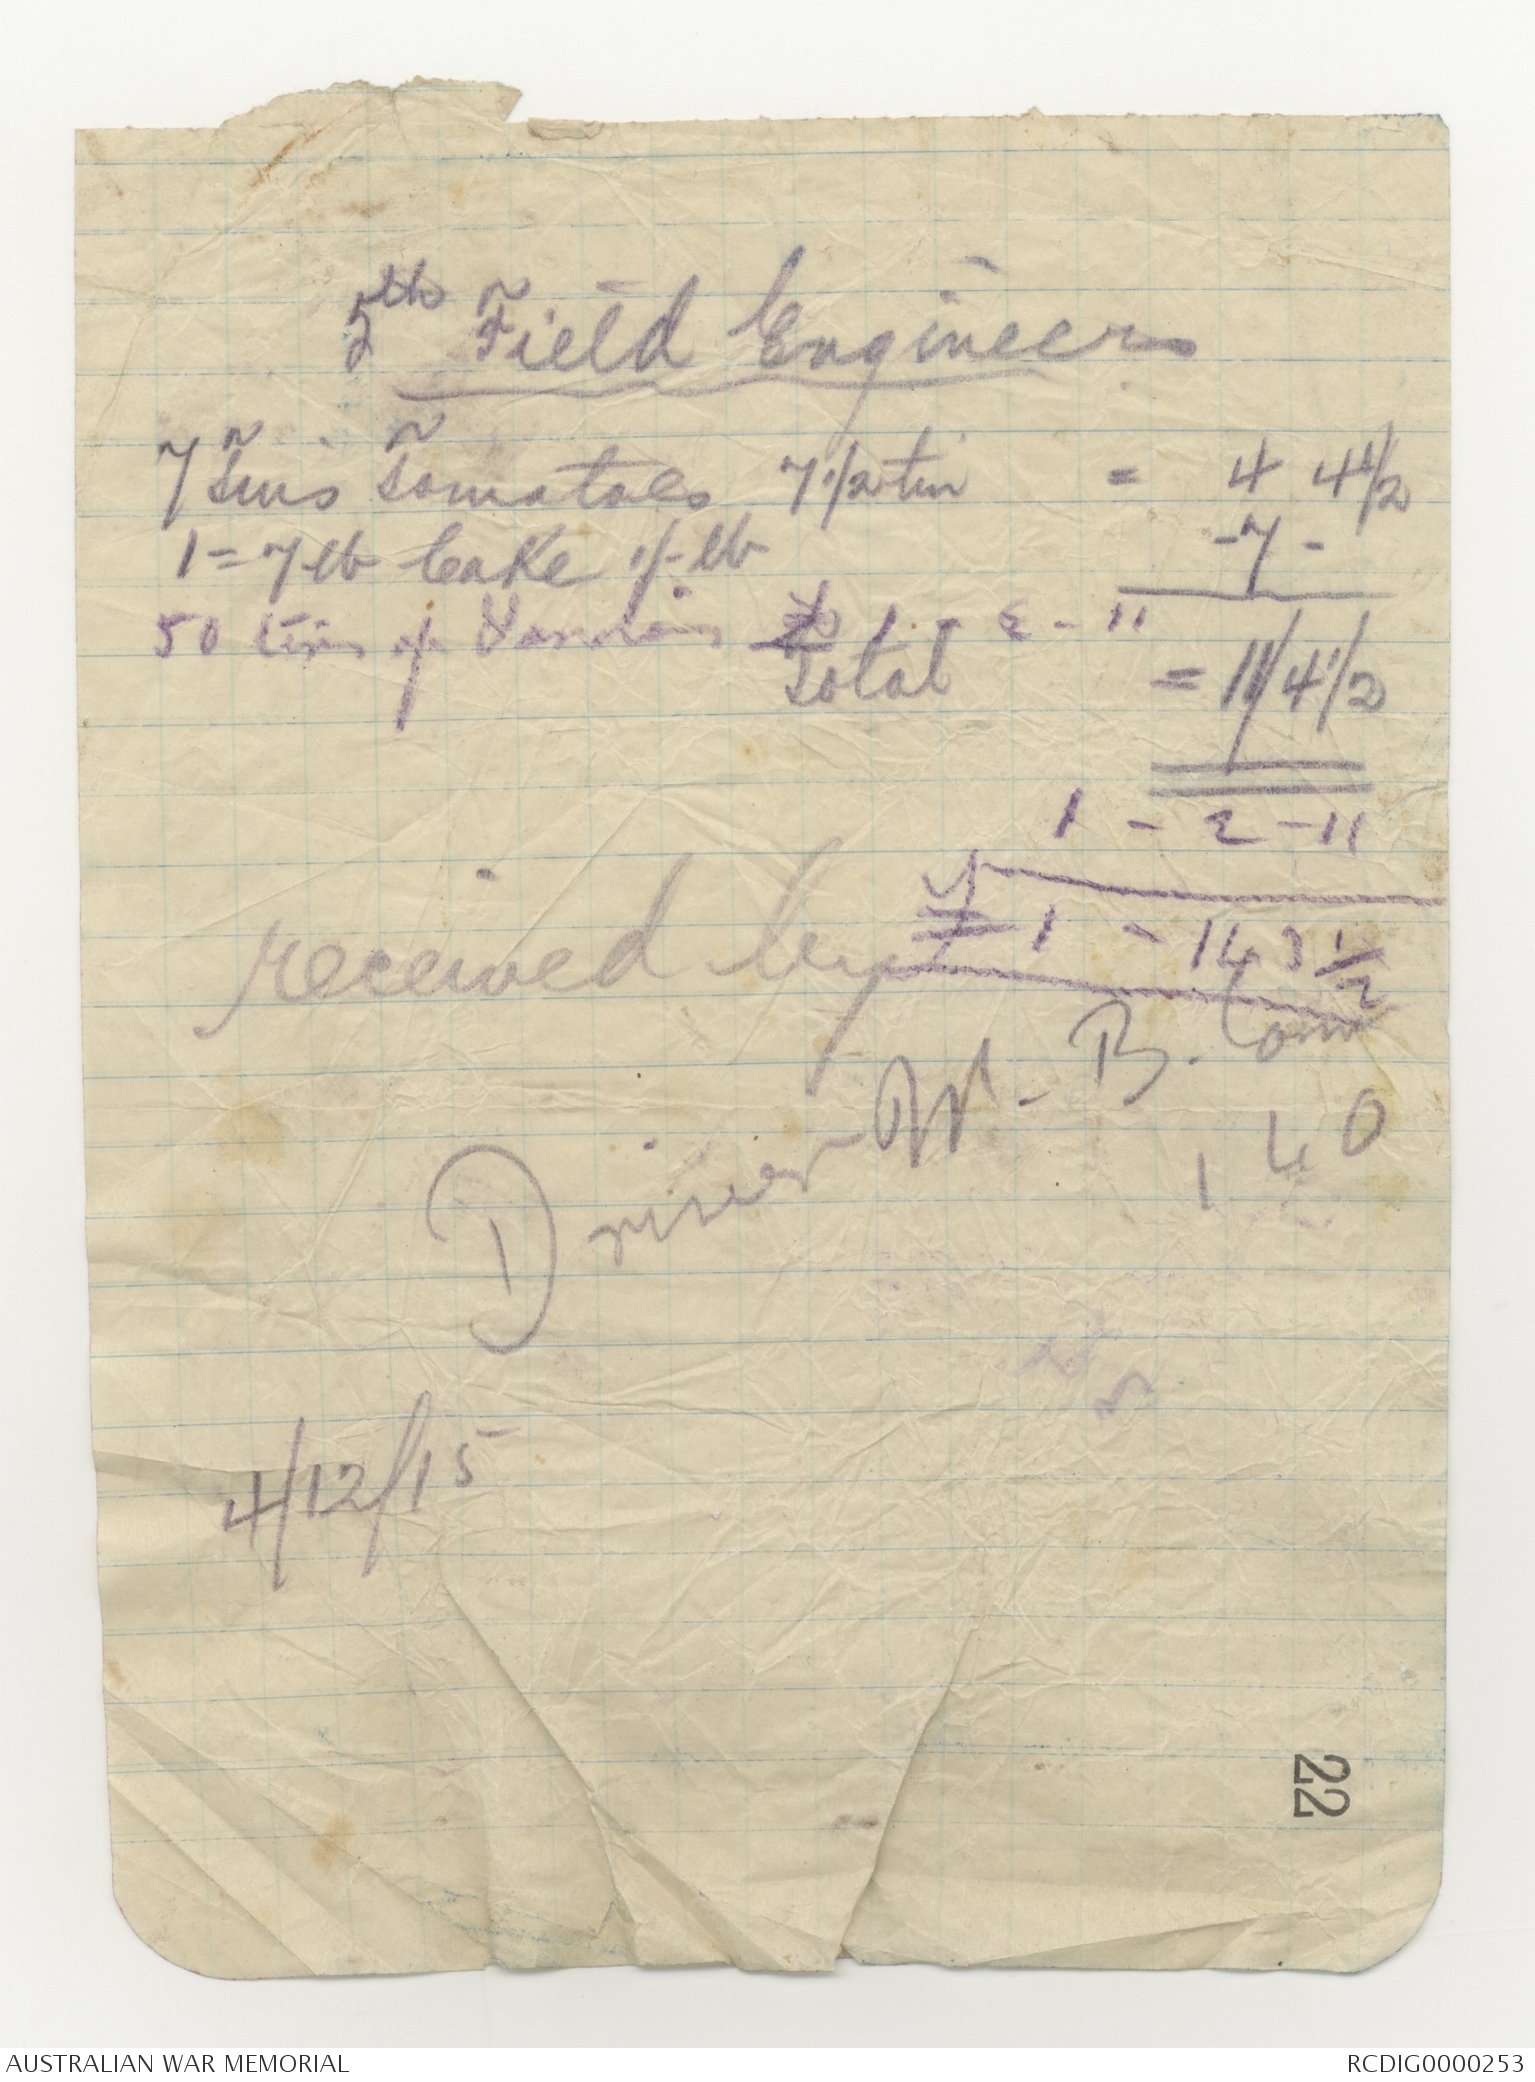 5th Field Engineers
7 Tins Tomatoes 7 1/2 tin = 4 4 1/2
1 = 7 lb Cake 1/- lb - 7 -
50 tins of 1 - 2 - 11
Total = 11/4 1/2
1 - 2 - 11
= 1 - 14 3 1/2
received by
Driver W. B. Tom
140
4/12/15
22
AUSTRALIAN WAR MEMORIAL
RCDIG0000253